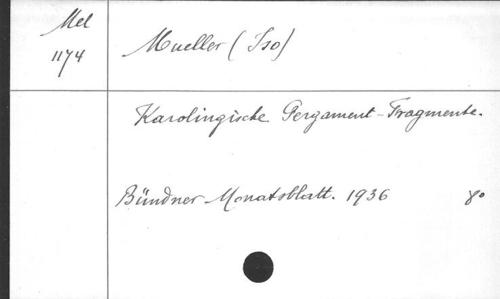 Mel
1174
Mueller (Iso)
Karolingische Pergament-Fragmente.
Bündner Monatsblatt. 1936 8°